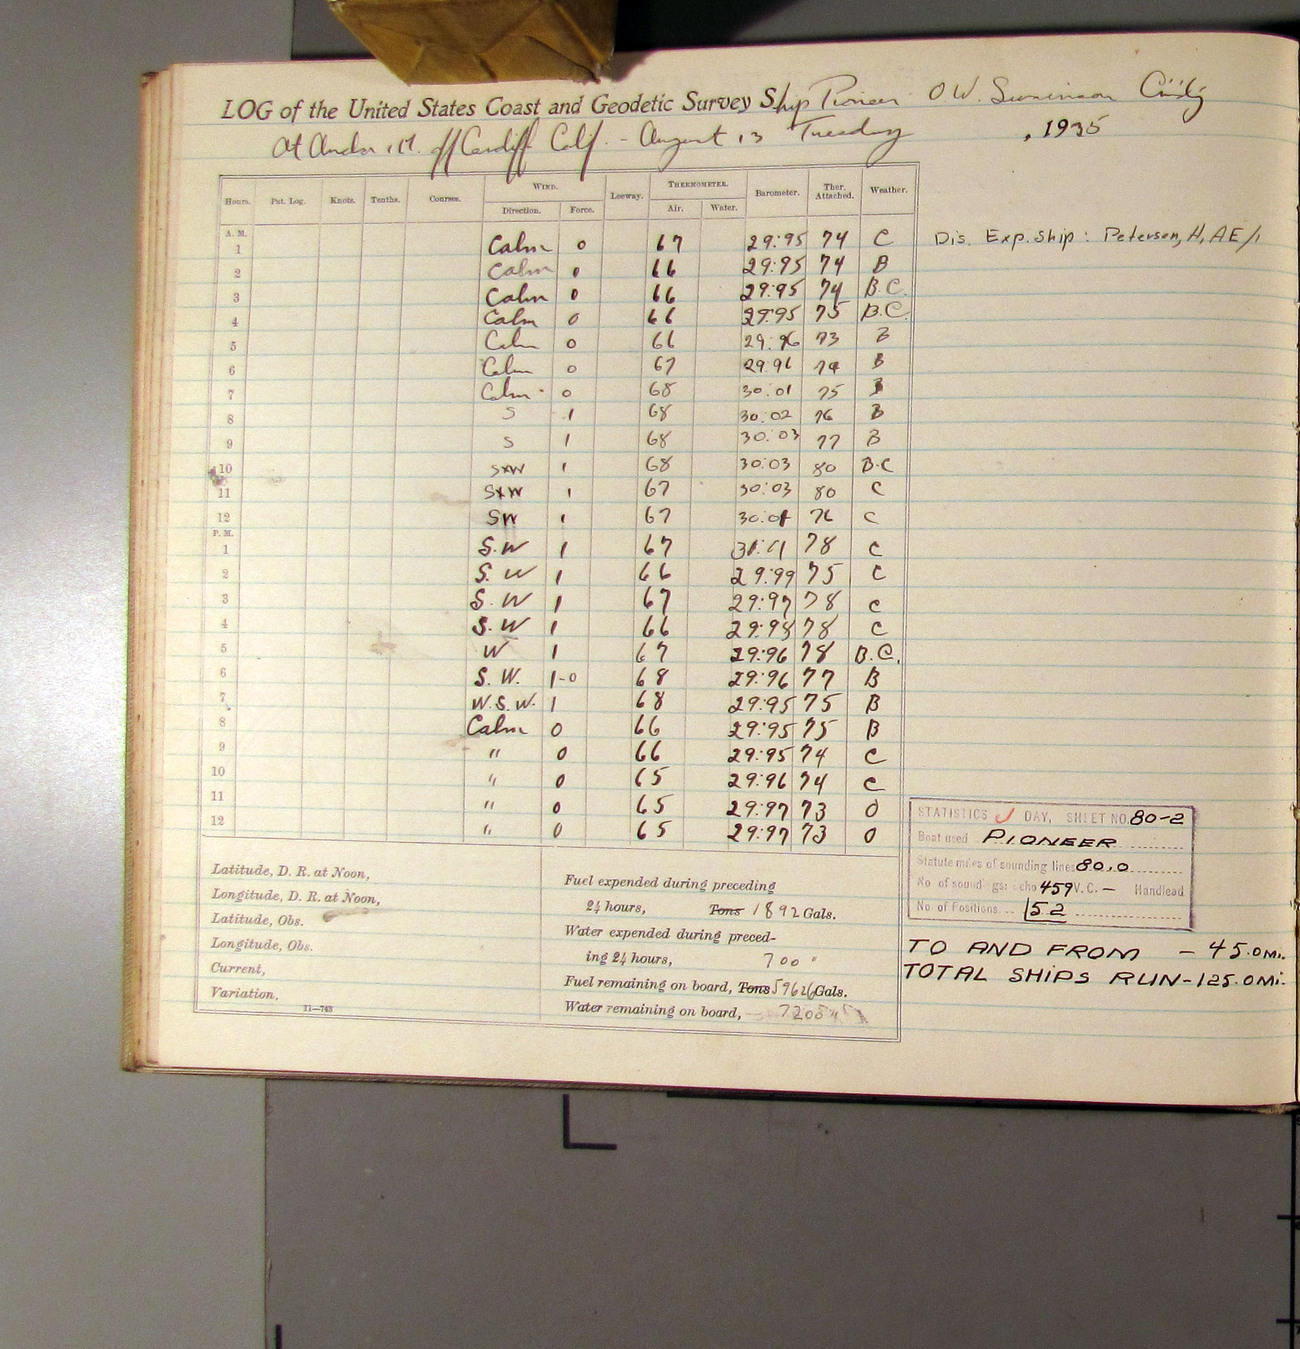 LOG of the United States Coast and Geodetic Survey Ship Pioneer O.W. Swainson Cmdg
At Anchor off Cardiff Calif. - August 13 Tuesday , 1935
Hours. Pat. Log. Knots. Tenths. Courses. WIND. Leeway. THERMOMETER. Barometer. Ther. Attached. Weather.
Direction. Force. Air. Water.
A. M.
1 Calm 0 67 29:95 74 C Dis. Exp. Ship: Petersen, H, AE/1
2 Calm 0 66 29:95 74 B
3 Calm 0 66 29:95 74 B.C.
4 Calm 0 66 29:95 75 B.C.
5 Calm 0 66 29:96 73 B
6 Calm 0 67 29:96 74 B
7 Calm 0 68 30:01 75 B
8 S 1 68 30:02 76 B
9 S 1 68 30:03 77 B
10 SxW 1 68 30:03 80 B.C
11 SxW 1 67 30:03 80 C
12 SW 1 67 30:01 76 C
P. M.
1 S.W 1 67 78 C
2 S.W 1 66 29:99 75 C
3 S.W 1 67 29:97 78 C
4 S.W 1 66 29:98 78 C
5 W 1 67 29:96 78 B.C.
6 S.W. 1-0 68 29:96 77 B
7 W.S.W. 1 68 29:95 75 B
8 Calm 0 66 29:95 75 B
9 " 0 66 29:95 74 C
10 " 0 65 29:96 74 C
11 " 0 65 29:97 73 O
12 " 0 65 29:97 73 O
STATISTICS J DAY, SHEET NO. 80-2
Boat used PIONEER
Statute miles of sounding lines 80.0
No. of soundings: echo 459 V.C. — Handlead
No. of Positions 52
TO AND FROM - 45.0 MI.
TOTAL SHIPS RUN - 125.0 MI.
Latitude, D. R. at Noon,
Longitude, D. R. at Noon,
Latitude, Obs.
Longitude, Obs.
Current,
Variation,
11—743
Fuel expended during preceding
24 hours, Tons 1892 Gals.
Water expended during preced-
ing 24 hours, 700 "
Fuel remaining on board, Tons 59626 Gals.
Water remaining on board,